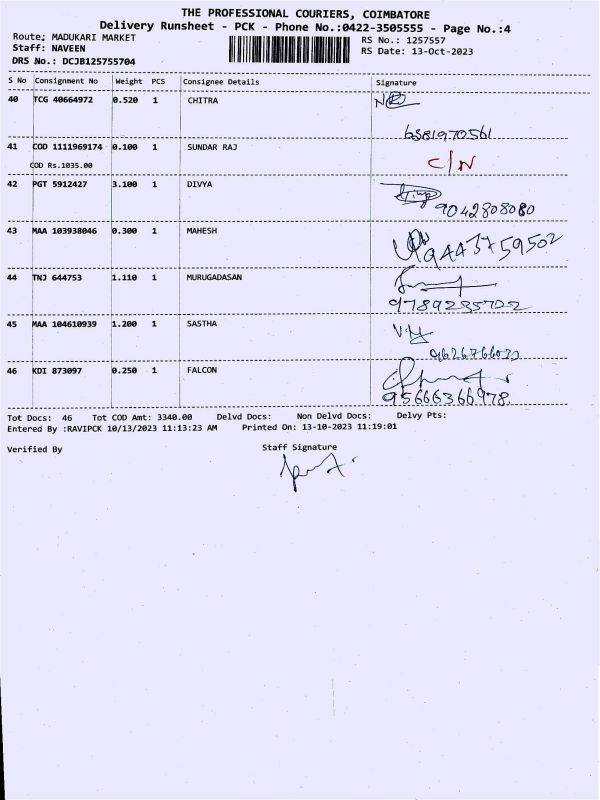 THE PROFESSIONAL COURIERS, COIMBATORE
Delivery Runsheet - PCK - Phone No.:0422-3505555 - Page No.:4
Route: MADUKARI MARKET RS No.: 1257557
Staff: NAVEEN RS Date: 13-Oct-2023
DRS No.: DCJB125755704
S No Consignment No Weight PCS Consignee Details Signature
40 TCG 40664972 0.520 1 CHITRA
6381970561
41 COD 1111969174 0.100 1 SUNDAR RAJ
COD Rs.1035.00 C/N
42 PGT 5912427 3.100 1 DIVYA
9042808080
43 MAA 103938046 0.300 1 MAHESH
9443759502
44 TNJ 644753 1.110 1 MURUGADASAN
9789235722
45 MAA 104610939 1.200 1 SASTHA
46 KDI 873097 0.250 1 FALCON
9566636978
Tot Docs: 46 Tot COD Amt: 3340.00 Delvd Docs: Non Delvd Docs: Delvy Pts:
Entered By :RAVIPCK 10/13/2023 11:13:23 AM Printed On: 13-10-2023 11:19:01
Verified By Staff Signature